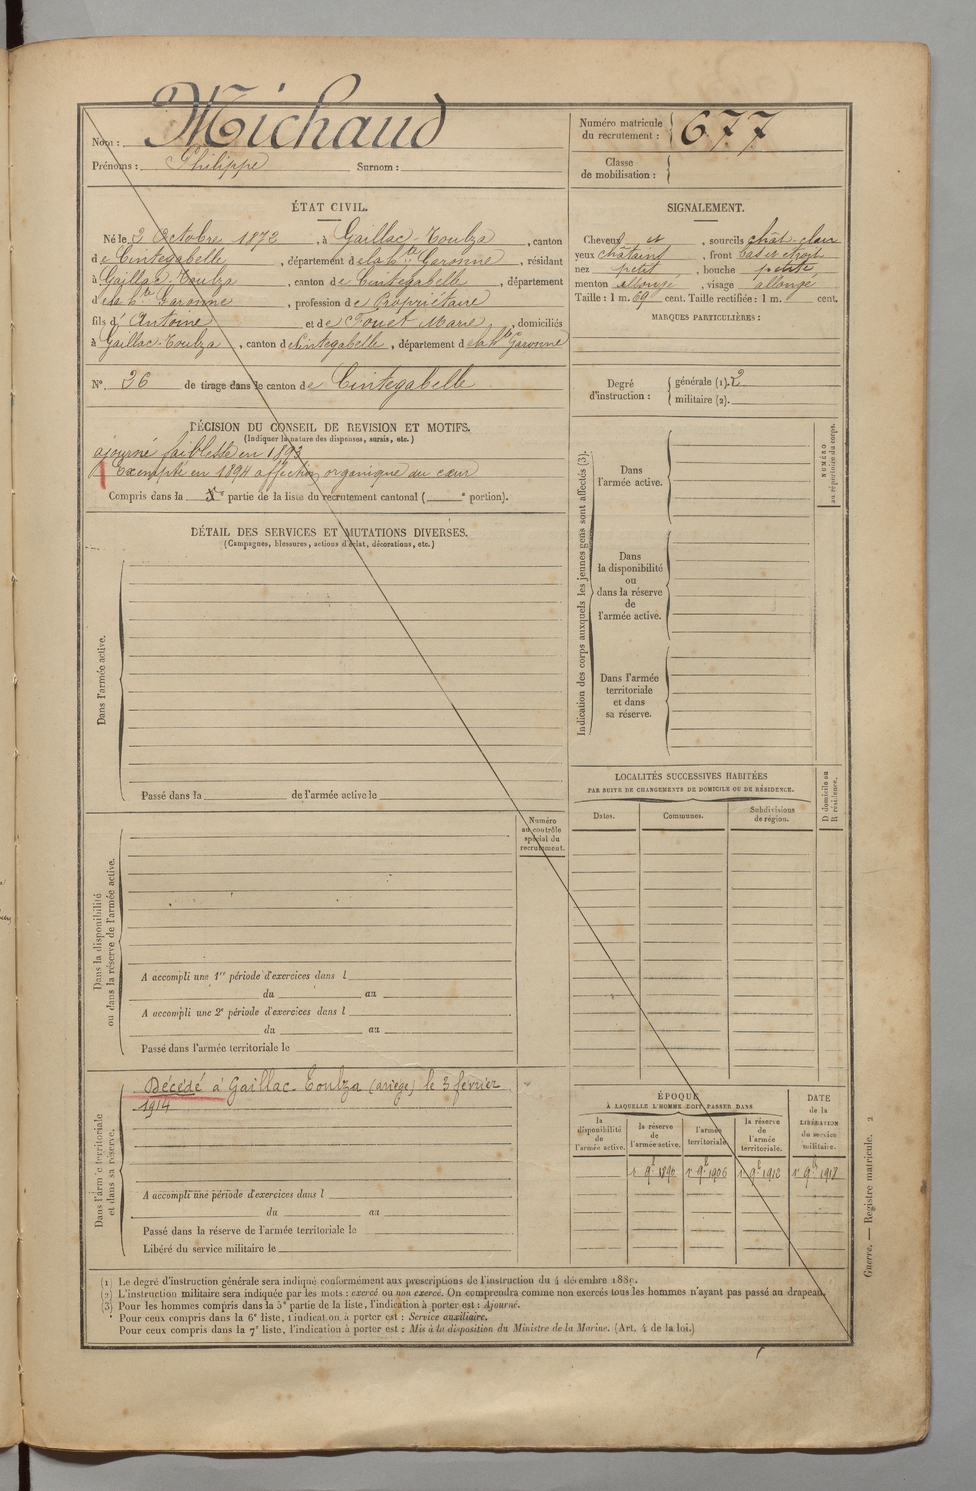 Nom : Michaud
Prénoms : Philippe Surnom :
Numéro matricule
du recrutement : 677
Classe
de mobilisation :
ÉTAT CIVIL.
Né le 2 Octobre 1872, à Gaillac-Toulza, canton
de Cintegabelle, département de la hte Garonne, résidant
à Gaillac-Toulza, canton de Cintegabelle, département
de la hte Garonne, profession de Propriétaire
fils d' Antoine et de Fouet Marie, domiciliés
à Gaillac-Toulza, canton de Cintegabelle, département de la hte Garonne
N° 36 de tirage dans le canton de Cintegabelle
SIGNALEMENT.
Cheveux et, sourcils chât-clair
yeux châtains, front bas et étroit
nez petit, bouche petite,
menton allongé, visage allongé
Taille : 1 m. 69 cent. Taille rectifiée : 1 m. cent.
MARQUES PARTICULIÈRES :
Degré
d'instruction :
générale (1). 2
militaire (2).
DÉCISION DU CONSEIL DE REVISION ET MOTIFS.
(Indiquer la nature des dispenses, sursis, etc.)
ajourné faiblesse en 1893
Exempté en 1894 affection organique du cœur
Compris dans la partie de la liste du recrutement cantonal ( e portion).
DÉTAIL DES SERVICES ET MUTATIONS DIVERSES.
(Campagnes, blessures, actions d'éclat, décorations, etc.)
Dans l'armée active.
Passé dans la de l'armée active le
Indication des corps auxquels les jeunes gens sont affectés (3).
Dans
l'armée active.
Dans
la disponibilité
ou
dans la réserve
de
l'armée active.
Dans l'armée
territoriale
et dans
sa réserve.
NUMÉRO
au répertoire du corps.
LOCALITÉS SUCCESSIVES HABITÉES
PAR SUITE DE CHANGEMENTS DE DOMICILE OU DE RÉSIDENCE.
Dates.
Communes.
Subdivisions
de région.
D domicile ou
R résidence.
Numéro
au contrôle
spécial du
recrutement.
Dans la disponibilité
ou dans la réserve de l'armée active.
A accompli une 1re période d'exercices dans l
du au
A accompli une 2e période d'exercices dans l
du au
Passé dans l'armée territoriale le
Dans l'armée territoriale
et dans sa réserve.
Décédé à Gaillac-Toulza (ariège) le 3 février
1914
A accompli une période d'exercices dans l
du au
Passé dans la réserve de l'armée territoriale le
Libéré du service militaire le
ÉPOQUE
À LAQUELLE L'HOMME DOIT PASSER DANS
la
disponibilité
de
l'armée active.
la réserve
de
l'armée active.
l'armée
territoriale.
la réserve
de
l'armée
territoriale.
DATE
de la
LIBÉRATION
du service
militaire.
1896 1906 1912 1918
(1) Le degré d'instruction générale sera indiqué conformément aux prescriptions de l'instruction du 4 décembre 1889.
(2) L'instruction militaire sera indiquée par les mots : exercé ou non exercé. On comprendra comme non exercés tous les hommes n'ayant pas passé au drapeau.
(3) Pour les hommes compris dans la 5e partie de la liste, l'indication à porter est : Ajourné.
Pour ceux compris dans la 6e liste, l'indication à porter est : Service auxiliaire.
Pour ceux compris dans la 7e liste, l'indication à porter est : Mis à la disposition du Ministre de la Marine. (Art. 4 de la loi.)
Guerre. — Registre matricule. 2